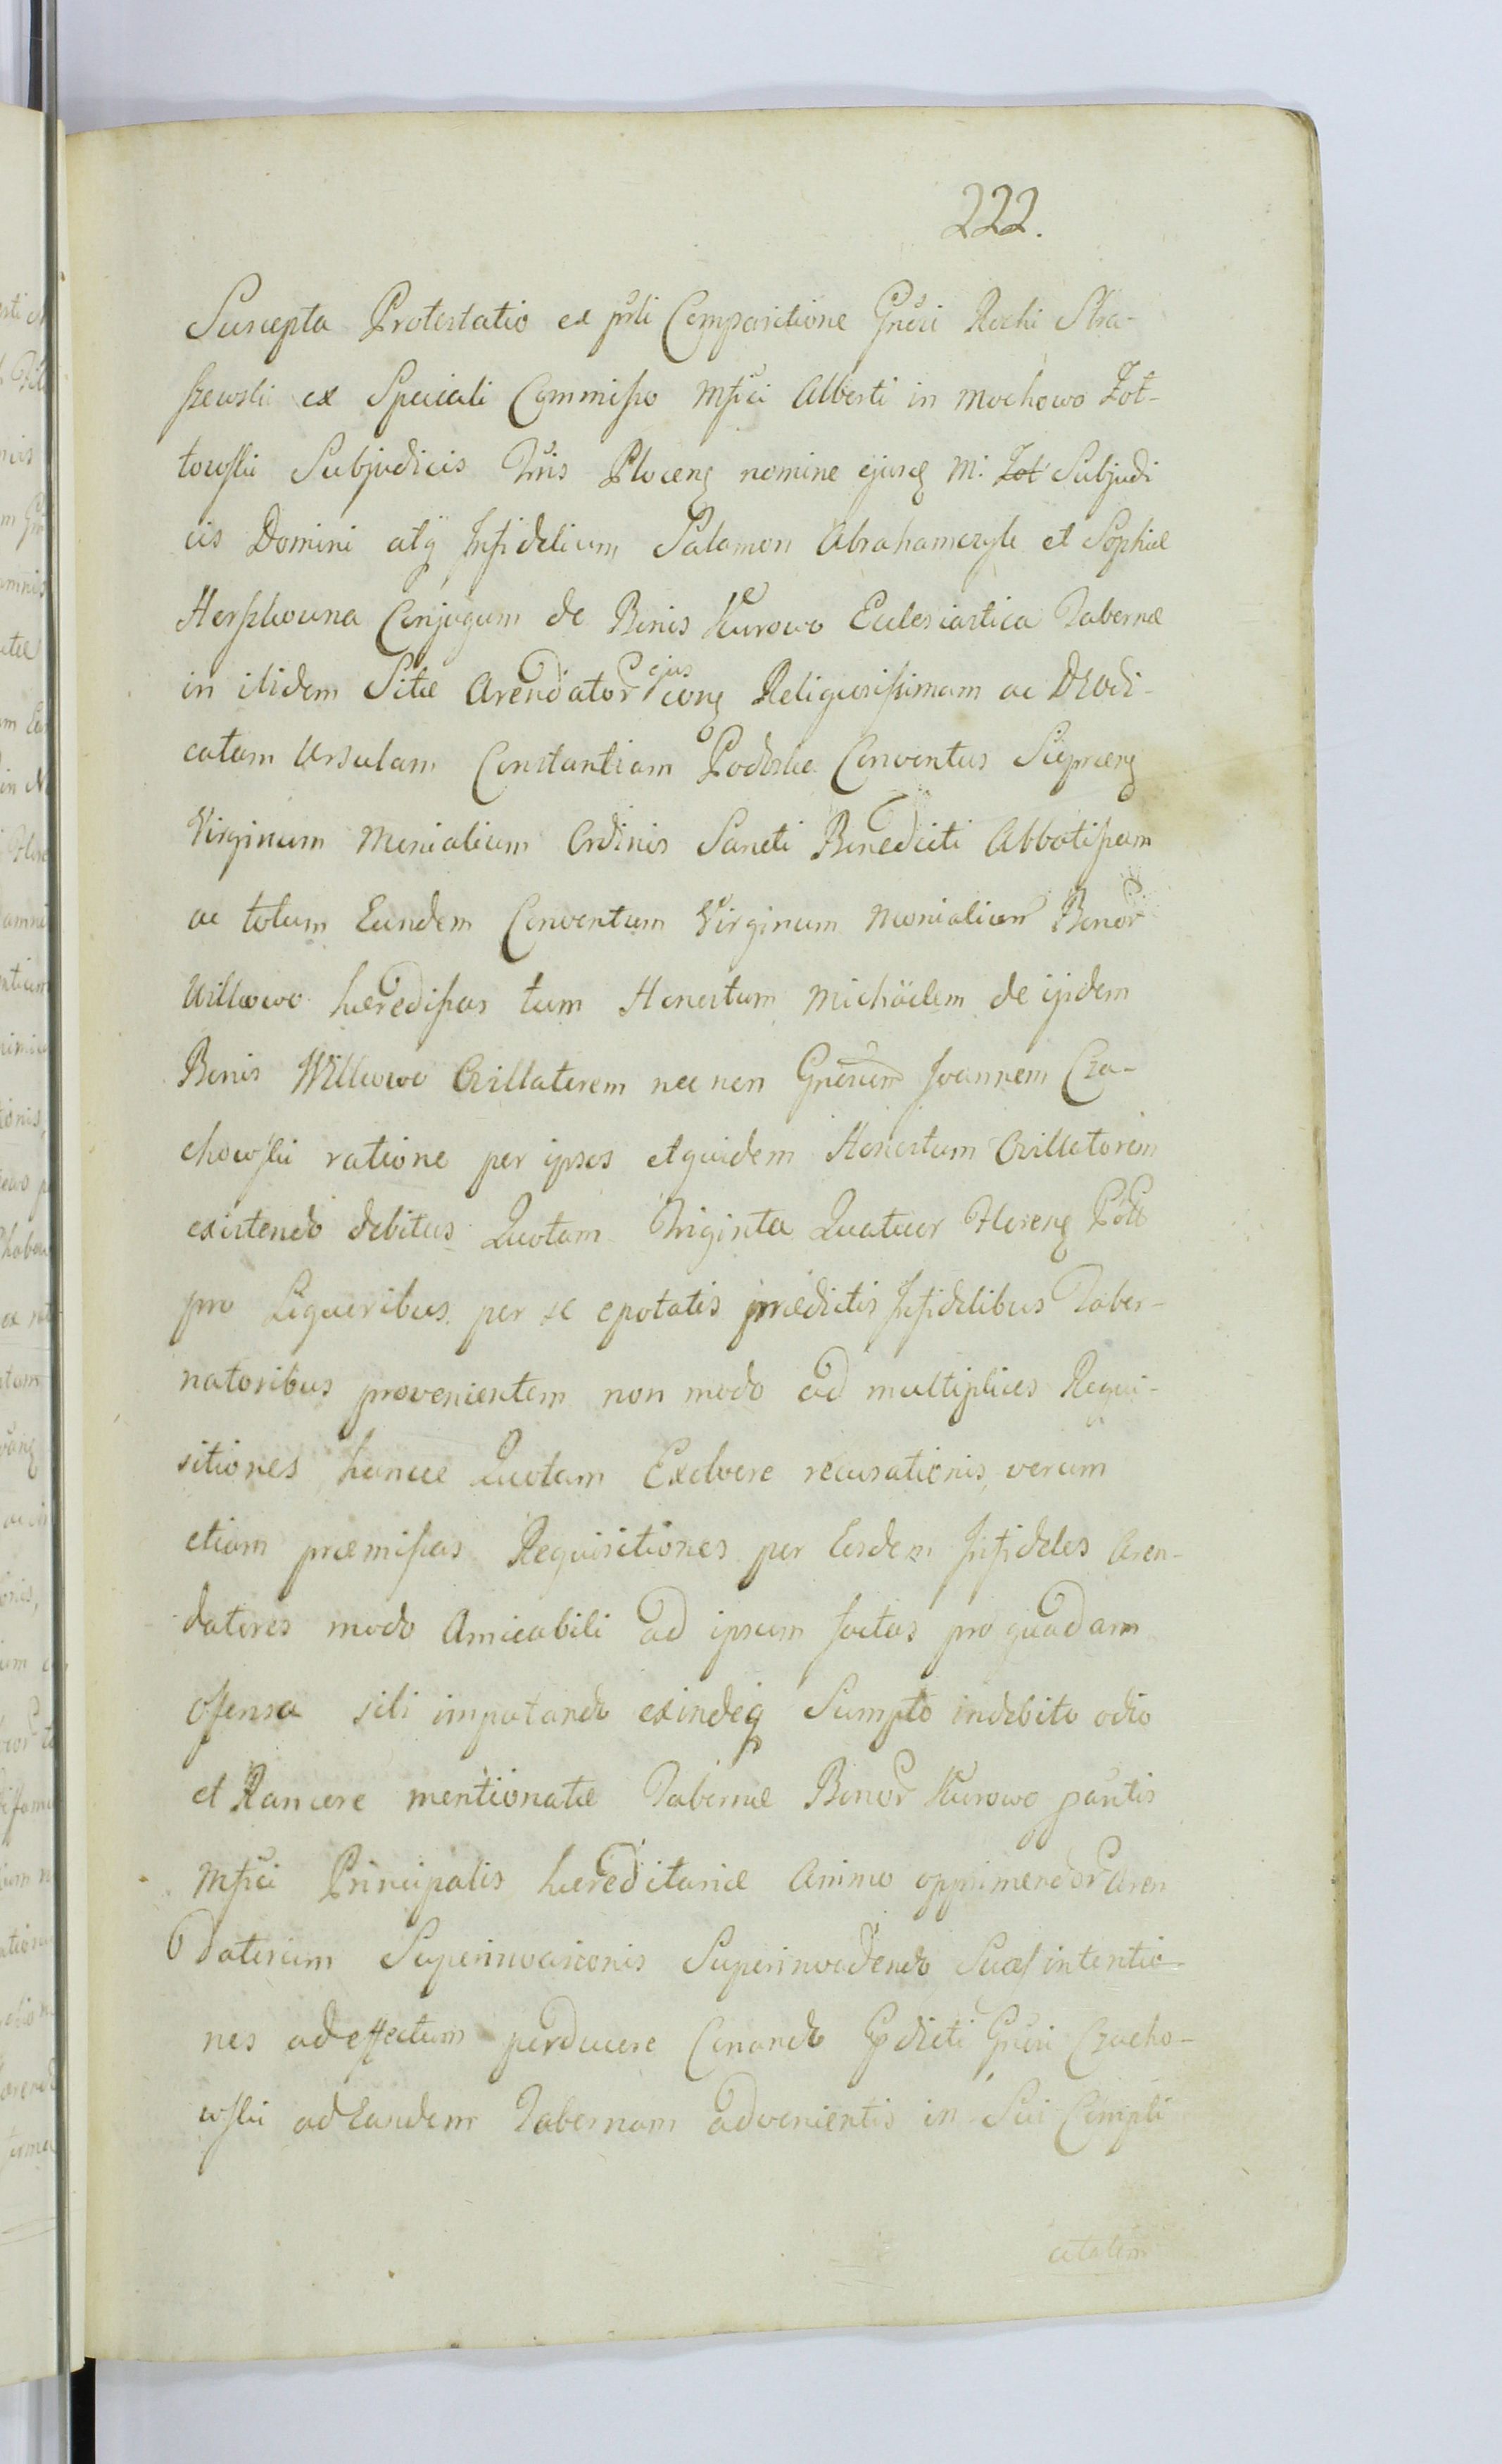 222.
Suscepta Protestatio ex psti Comparitione Gnosi Rochi Stra-
szewski ex Speciali Commisso Mfici Alberti in Mochowo Zot-
towski Subjudicis Tris Plocens nomine ejusq M: Zot Subjudi
cis Domini atq Infidelium Salamon Abrahamczyk et Sophiae
Herszkowna Conjugum de Bonis Kurowo Ecclesiastica Tabernae
in ibidem Sitae Arendator ejus cong Religiosissimam ac DEodi-
catam Ursulam Constantiam Podoska Conventus Sieprcens
Virginum Monialium Ordinis Sancti Benedicti Abbatissam
ac totum Eundem Conventum Virginum Monialium Bonor
Willkowo haeredissas tum Honestum Michaëlem de ijsdem
Bonis Willkowo Ovillatorem nec non Gnosum Joannem Cza-
chowski ratione per ipsos etquidem Honestum Ovillatorem
existendo debitus Quotam Triginta Quatuor Florens Poll
pro Liquoribus per se epotatis praedictis Infidelibus Taber-
natoribus provenientem non modo ad multiplices Requi-
sitiones hancce Quotam Exolvere recusationis, verum
etiam praemissas Requisitiones per Eosdem Infideles Aren-
datores modo Amicabili ad ipsum factas pro quadam
offensa sibi imputando exindeq Sumpto indebito odio
et Rancore mentionatae Tabernae Bonor Kurowo partis
Mfici Principalis haereditariae Animo opprimendor Aren
datorum Superinvasionis Superinvadendo Suas intentio-
nes adeffectum perducere Conando Epdicti Gnosi Czacho-
wski adEandem Tabernam advenientis in Sui Compli
citatem